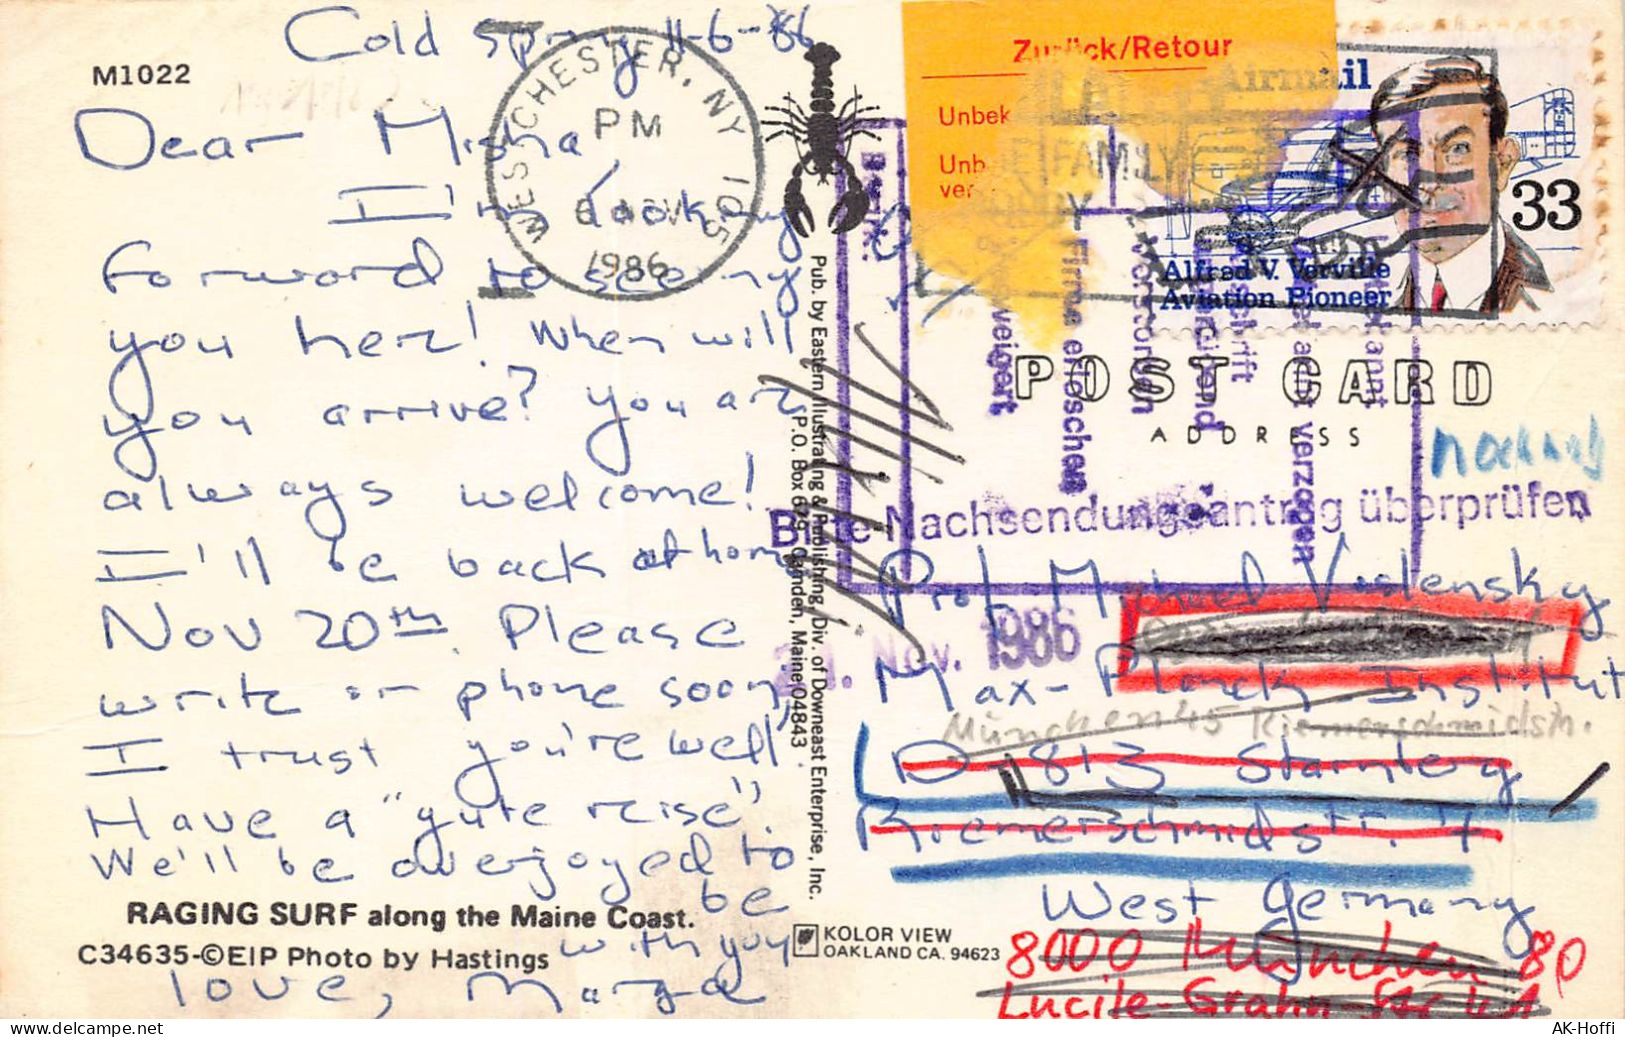 Cold Spring 11-6-86
M1022
Dear Misha,
I'm looking
forword to seeing
you here! When will
you arrive? You are
always welcome!
I'll be back at home
Nov 20th. Please
write or phone soon,
I trust you're well
Have a "gute reise".
We'll be overjoyed to
be
with you
love, Marga
RAGING SURF along the Maine Coast.
C34635-©EIP Photo by Hastings
WESTCHESTER, NY 105
PM
6 NOV
1986
Pub. by Eastern Illustrating & Publishing, Div. of Downeast Enterprise, Inc.
P.O. Box 679, Camden, Maine 04843
KOLOR VIEW
OAKLAND CA. 94623
Zurück/Retour
Unbek
Unb
ver
FAMILY
Airmail
33
Alfred V. Verville
Aviation Pioneer
POST CARD
ADDRESS
Firma erloschen
verstorben
verzogen
Bitte Nachsendungsantrag überprüfen
21. Nov. 1986
Prof. Michael Voslensky
Max-Planck Institut
München 45 Riemerschmidstr.
D-813 Starnberg
Riemerschmidstr. 7
West Germany
8000 München 80
Lucile-Grahn-Str
AK-Hoffi